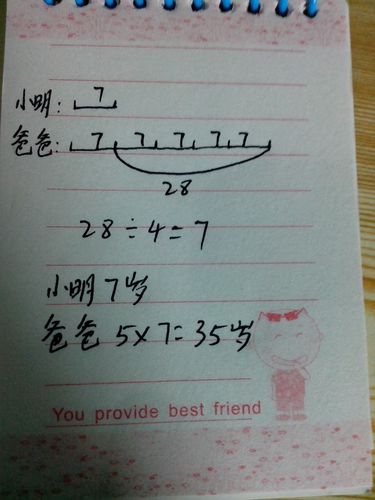 小明: 7
爸爸: 7 7 7 7 7
28
28÷4=7
小明7岁
爸爸 5×7=35岁
You provide best friend